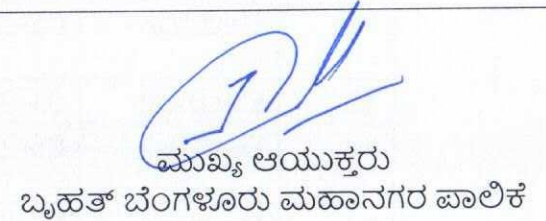 ಮುಖ್ಯ ಆಯುಕ್ತರು
ಬೃಹತ್ ಬೆಂಗಳೂರು ಮಹಾನಗರ ಪಾಲಿಕೆ